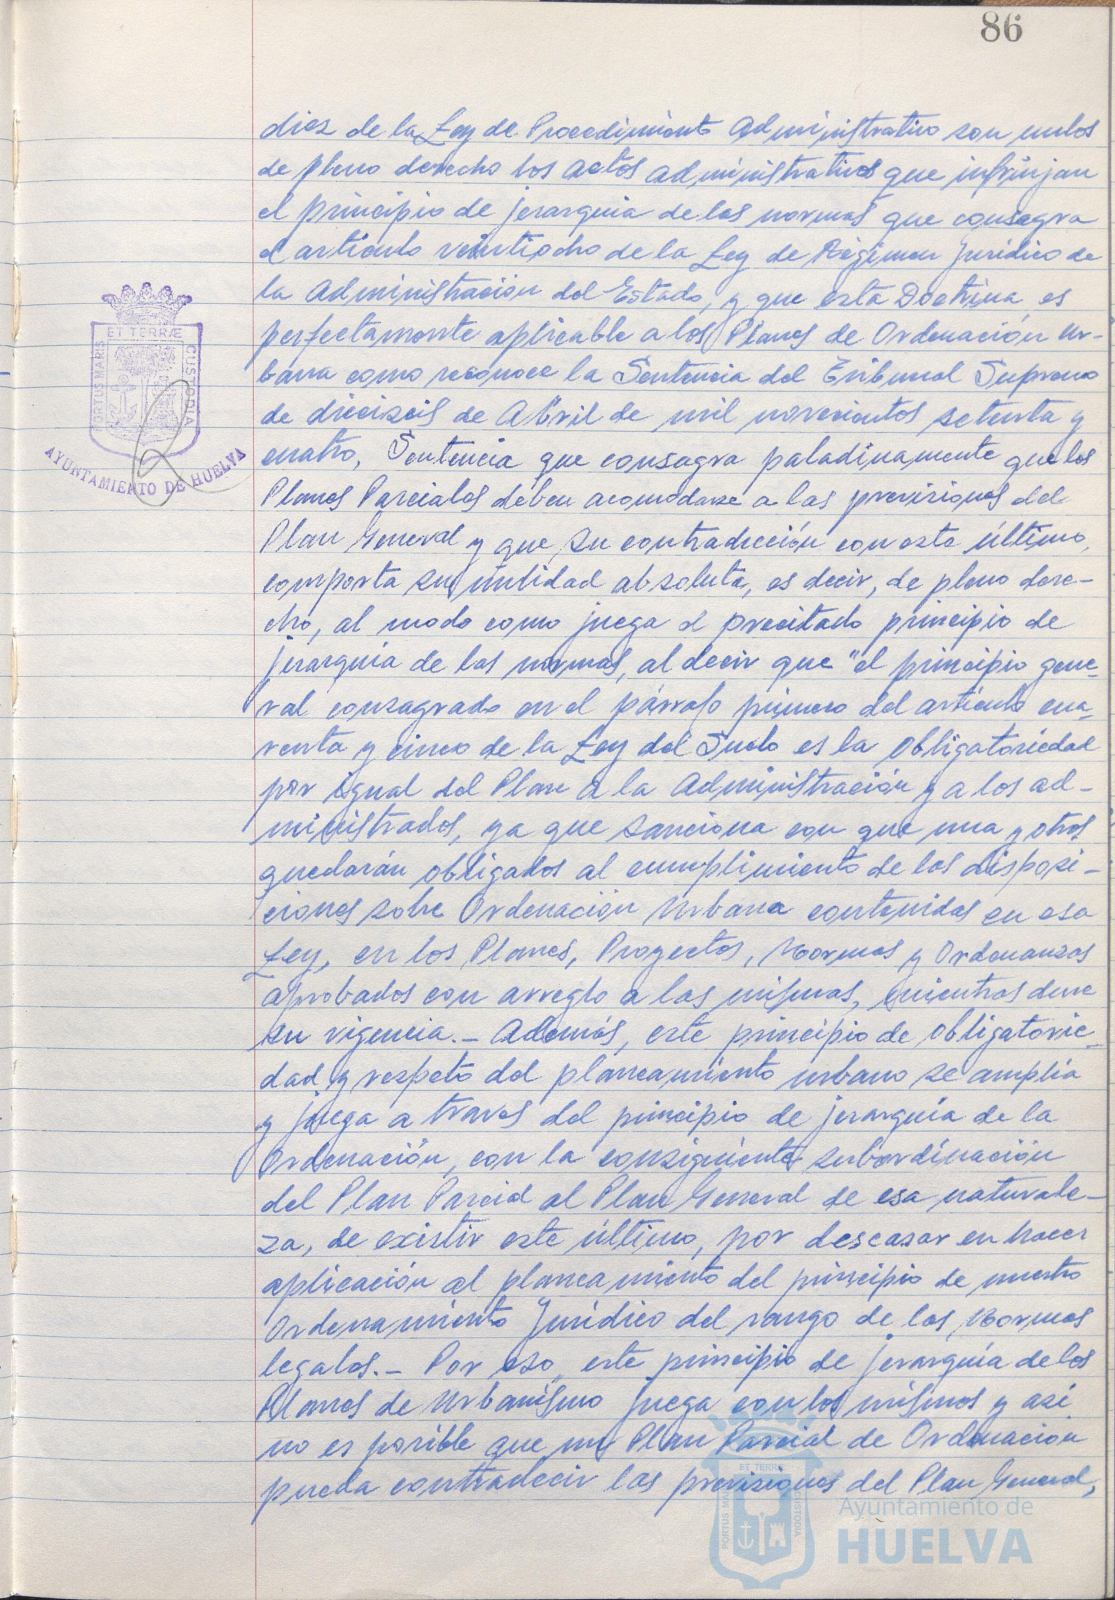 86
diez de la Ley de Procedimiento Administrativo son nulos
de pleno derecho los actos administrativos que infrinjan
el principio de jerarquia de las normas que consagra
el artículo veintiocho de la Ley de Régimen Jurídico de
la Administración del Estado, y que esta Doctrina es
perfectamente aplicable a los Planes de Ordenación Ur-
bana como reconoce la Sentencia del Tribunal Supremo
de dieciseis de Abril de mil novecientos setenta y
cuatro, Sentencia que consagra paladinamente que los
Planes Parciales deben acomodarse a las previsiones del
Plan General y que su contradicción con este último,
comporta su nulidad absoluta, es decir, de pleno dere-
cho, al modo como juega el precitado principio de
jerarquía de las normas, al decir que "el principio gene-
ral consagrado en el párrafo primero del artículo cua-
renta y cinco de la Ley del Suelo es la obligatoriedad
por igual del Plan a la Administración y a los ad-
ministrados, ya que sanciona con que una y otros
quedarán obligados al cumplimiento de las disposi-
ciones sobre Ordenación Urbana contenidas en esa
Ley, en los Planes, Proyectos, Normas y Ordenanzas
aprobados con arreglo a las mismas, mientras dure
su vigencia.- Además, este principio de obligatorie-
dad y respeto del planeamiento urbano se amplía
y juega a traves del principio de jerarquía de la
Ordenación, con la consiguiente subordinación
del Plan Parcial al Plan General de esa naturale-
za, de existir este último, por descasar en hacer
aplicación al planeamiento del principio de nuestro
Ordenamiento Jurídico del rango de las Normas
legales.- Por eso, este principio de jerarquía de los
Planes de Urbanísmo juega con los mismos y así
no es posible que un Plan Parcial de Ordenación
pueda contradecir las previsiones del Plan General,
PORTUS MARIS ET TERRÆ CUSTODIA
AYUNTAMIENTO DE HUELVA
PORTUS MARIS ET TERRÆ CUSTODIA
Ayuntamiento de
HUELVA